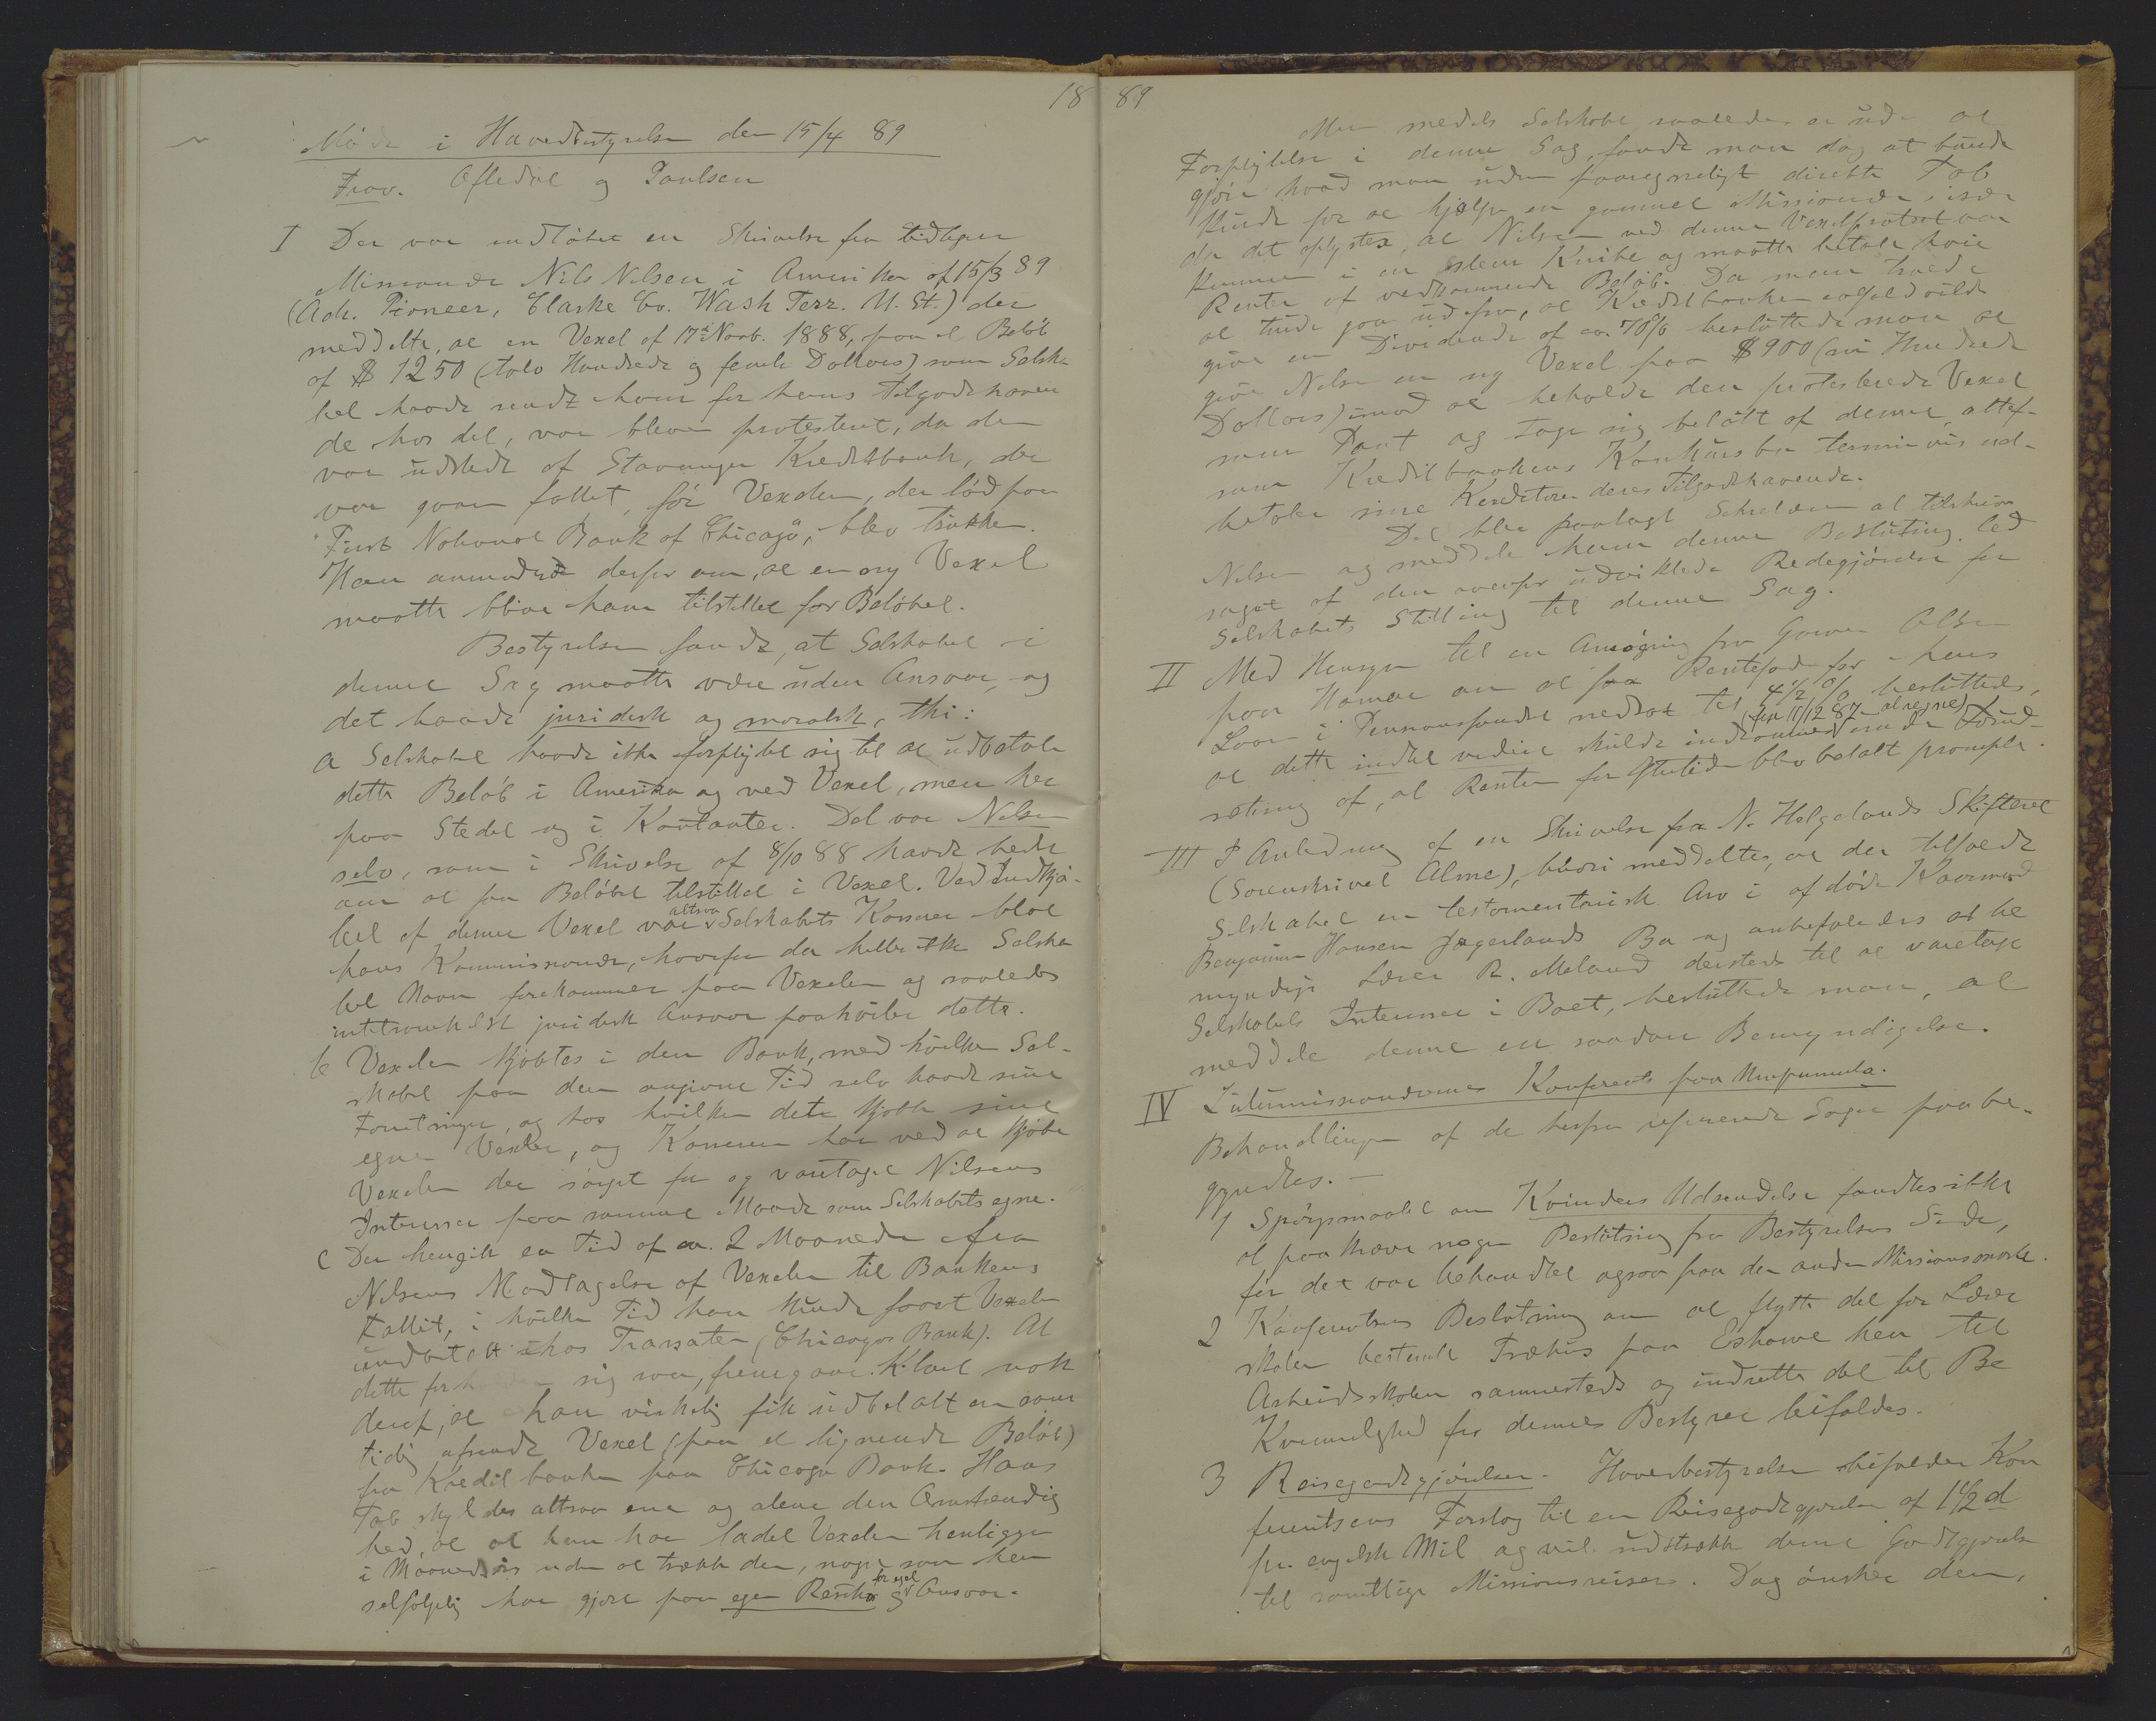 18 89
Møde i Hovedbestyrelsen den 15/4 89
Frav. Oftedal og Poulsen
I Der var indløbet en Skrivelse fra tidligere
Missionær Nils Nilsen i Amerika af 15/3 89
(Adr. Pioneer, Clarke Co. Wash Terr. U. St.) der
meddelte, at en Vexel af 17de Novb. 1888, paa et Beløb
af $ 1250 (tolv Hundrede og femti Dollars) som Selska-
bet havde sendt ham for hans Tilgodehaven
de hos det, var bleven protesteret, da den
var udstedt af Stavanger Kreditbank, der
var gaaet fallit, før Vexelen, der lød paa
"First National Bank of Chicago", blev trukken.
Han anmodede derfor om, at en ny Vexel
maatte blive ham tilstillet for Beløbet.
Bestyrelsen fandt, at Selskabet i
denne Sag maatte være uden Ansvar, og
det baade juridisk og moralsk, thi:
a Selskabet havde ikke forpligtet sig til at udbetale
dette Beløb i Amerika og ved Vexel, men her
paa Stedet og i Kontanter. Det var Nilsen
selv, som i Skrivelse af 8/10 88 havde bedt
om at faa Beløbet tilstillet i Vexel. Ved Indkjø-
bet af denne Vexel var altsaa Selskabets Kasserer blot
hans Kommissionær, hvorfor der heller ikke Selska
bets Navn forekommer paa Vexelen og saaledes
intetsomhelst juridisk Ansvar paahviler dette.
b Vexelen kjøbtes i den Bank, med hvilken Sel-
skabet paa den angivne Tid selv havde sine
Forretninger, og hos hvilken det kjøbte sine
egne Vexler, og Kasserer har ved at kjøbe
Vexelen der sørget for og varetaget Nilsens
Interesser paa samme Maade som Selskabets egne.
c Der hengik en Tid af ca. 2 Maaneder fra
Nilsens Modtagelse af Vexelen til Bankens
Fallit, i hvilken Tid han kunde faaet Vexelen
indbetalt hos Trassaten (Chicago Bank). At
dette forholder sig saa, fremgaar klart nok
deraf, at han virkelig fik udbetalt en sam
tidig afsendt Vexel (paa et lignende Beløb)
fra Kreditbanken paa Chicago Bank. Hans
Tab skyldes altsaa ene og alene den Omstændig
hed, at at han har ladet Vexelen henligge
i Maanedsvis uden at trække den, noget som han
selvfølgelig har gjort paa egen Risiko og for eget Ansvar.
Men medens Selskabet saaledes er uden al
Forpligtelse i denne Sag, fandt man dog at burde
gjøre hvad man uden paaregneligt direkte Tab
kunde for at hjælpe en gammel Missionær, især
da det oplystes, at Nilsen ved denne Vexelprotest var
kommen i en slem Knibe og maatte betale høie
Renter af vedkommende Beløb. Da man troede
at turde gaa ud fra, at Kreditbanken ialfald vilde
give en Dividende af ca. 70% besluttede man at
give Nilsen en ny Vexel paa $ 900 (ni Hundrede
Dollars) imod at beholde den protesterede Vexel
som Pant og tage sig betalt af denne, attef-
som Kreditbankens Konkursbo terminvis ud-
betaler sine Kreditorer deres Tilgodehavende.
Det blev paalagt Sekretæren at tilskrive
Nilsen og meddele ham denne Beslutning led
saget af den ovenfor udviklede Redegjørelse for
Selskabets Stilling til denne Sag.
II Med Hensyn til en Ansøgning fra Olsen
paa Hamar om at faa Rentefoden for hans
Laan i Pensionsfondet nedsat til 4 1/2 % besluttedes,
at dette indtil videre skulde indrømmes (fra 11/12 87 at regne) under Forud-
sætning af, at Renten for Eftertiden blev betalt prompte.
III I Anledning af en Skrivelse fra N. Helgelands Skifteret
(Sorenskriver Alme), hvori meddeltes, at der tilfaldt
Selskabet en testamentarisk Arv i afdøde Kaarmand
Benjamin Hansen Jægerlands Bo og anbefaledes at be
myndige Lærer R. Meland dersteds til at varetage
Selskabets Interesser i Boet, besluttede man, at
meddele denne en saadan Bemyndigelse.
IV Zulumissionærernes Konferents paa Umpumulo.
Behandlingen af de herfra refererede Sager paabe-
gyndtes. —
1 Spørgsmaalet om Kvinders Udsendelse fandtes ikke
at paakræve nogen Beslutning fra Bestyrelsens Side,
før det var behandlet ogsaa paa den anden Missionsmark.
2 Konferentsens Beslutning om at flytte det for Lærer
skolen bestemte Træhus paa Eshowe hen til
Arbeidsskolen sammesteds og indrette det til Be
kvemmelighed for dennes Bestyrer bifaldes.
3 Reisegodtgjørelsen. Hovedbestyrelsen bifalder Kon
ferentsens Forslag til en Reisegodtgjørelse af 1 1/2 d
pr. engelsk Mil og vil udstrække denne Godtgjørelse
til samtlige Missionsreiser. Dog ønsker den,